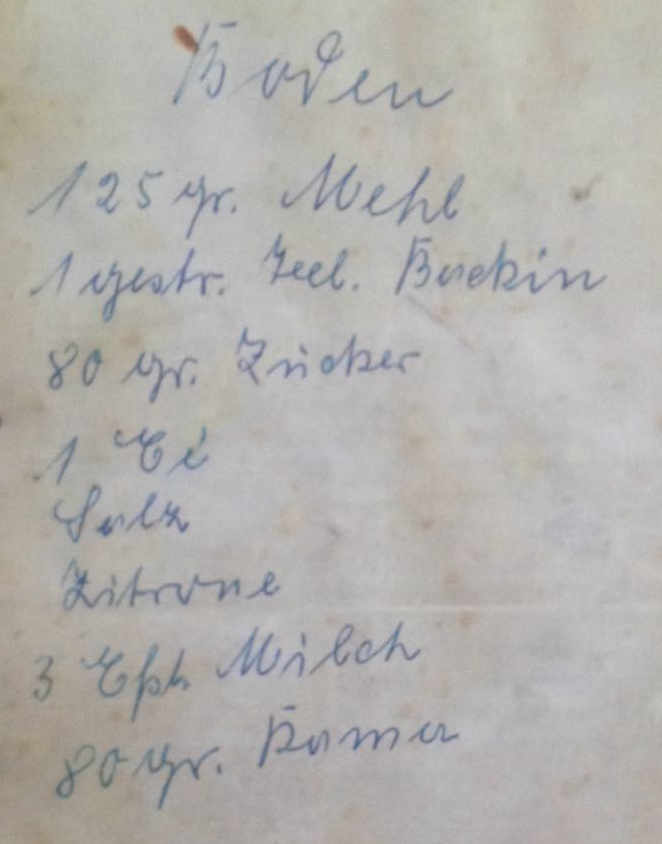 Boden
125 gr. Mehl
1 gestr. Teel. Backin
80 gr. Zucker
1 Ei
Salz
Zitrone
3 Eßl. Milch
80 gr. Rama